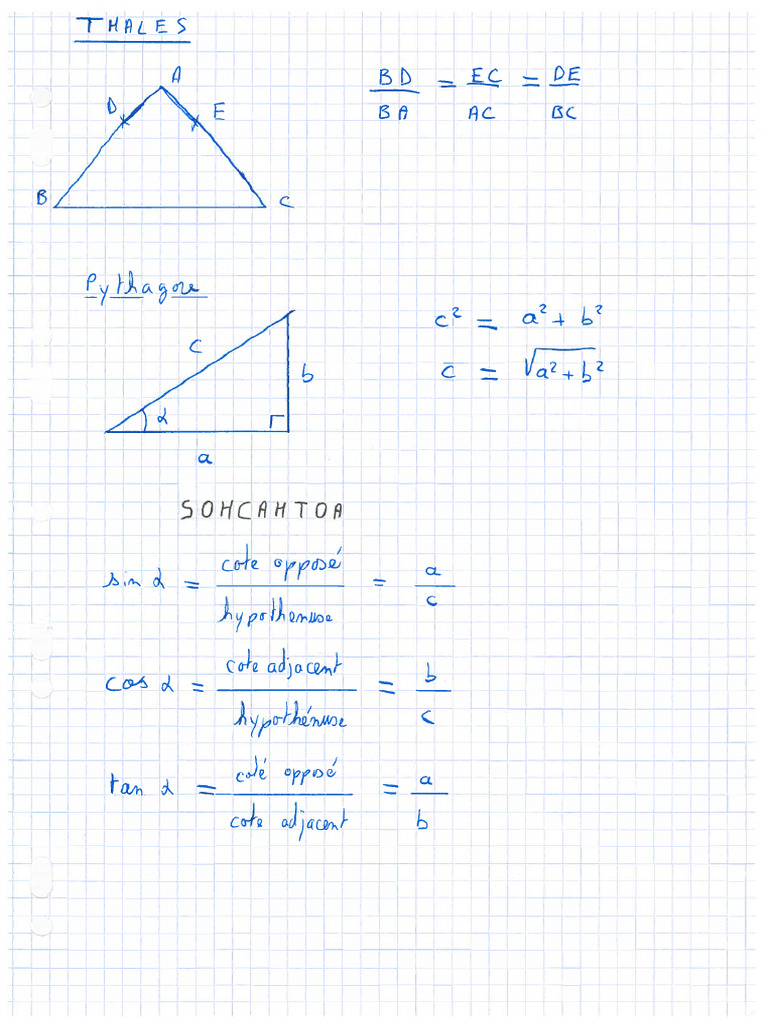 THALES
A
D E
B C
BD/BA = EC/AC = DE/BC
Pythagore
c
b
α
a
c² = a² + b²
c̄ = √a² + b²
SOHCAHTOA
sin α = cote opposé/hypothenuse = a/c
cos α = cote adjacent/hypothénuse = b/c
tan α = coté opposé/cote adjacent = a/b